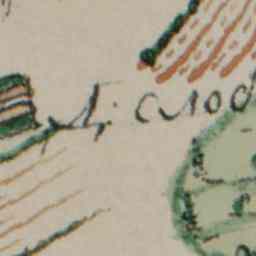 Д: слоб